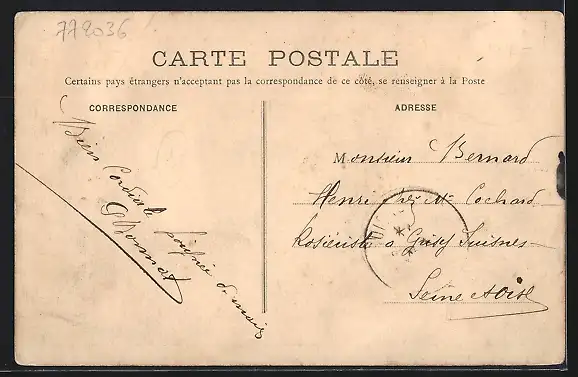 772036
CARTE POSTALE
Certains pays étrangers n'acceptant pas la correspondance de ce côté, se renseigner à la Poste
CORRESPONDANCE
ADRESSE
Bien Cordiale poignée d. main
Monsieur Bernard
Henri chez Mr Cochard
Rosieriste a Grisy Suisnes
Seine et Oise